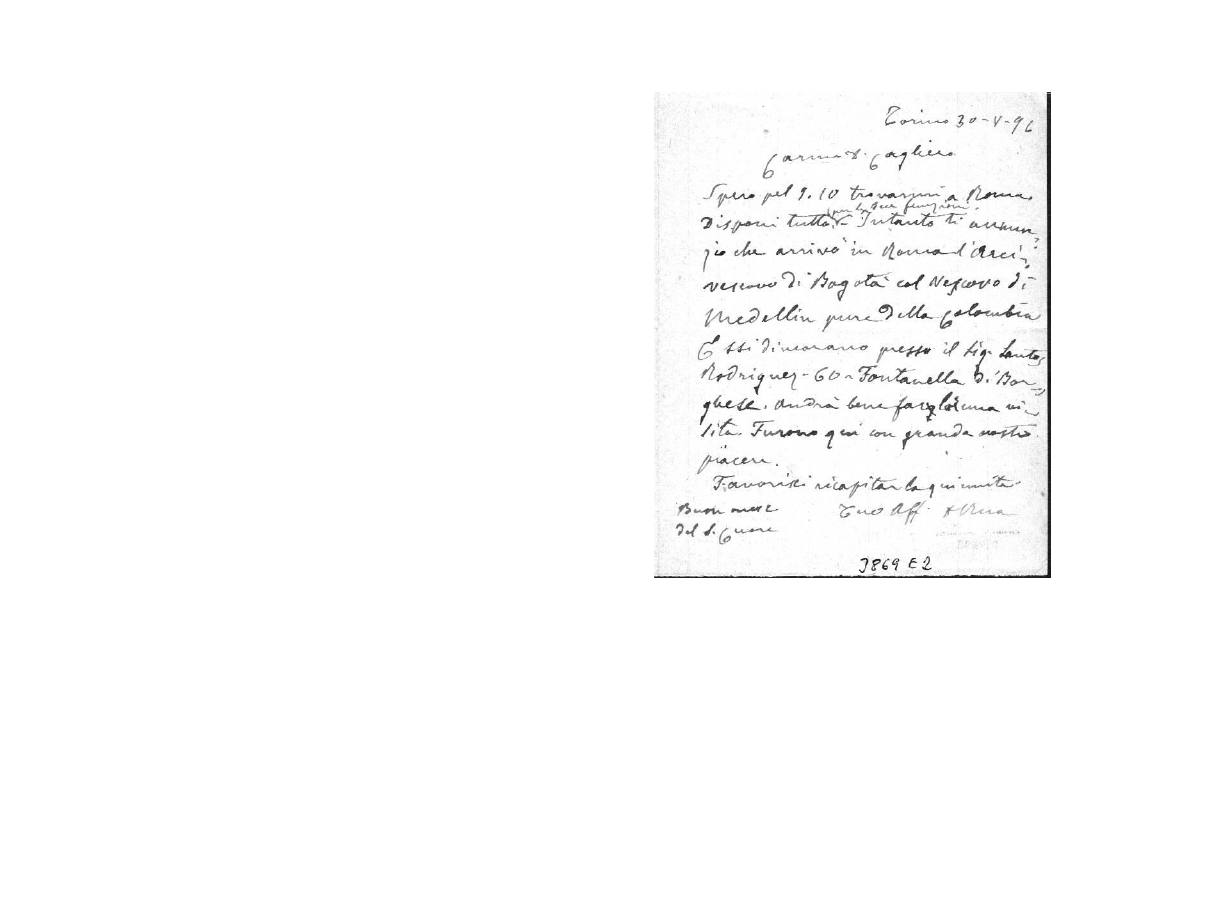 Torino 30-V-96
Carmo D. Cagliero
Spero pel 9.10 trovarmi a Roma.
(per le due funzioni.
Disponi tutto – Intanto ti annun
zio che arrivò in Roma l'Arci
vescovo di Bogotà col Vescovo di
Medellin pure della Colombia
Essi dimorano presso il Sig. Santos
Rodriguez - 60 - Fontanella di Bor=
ghese. Andrà bene far loro una vi=
sita. Furono qui con grande nostro
piacere.
Favorisci ricapitar la qui unita
Buon mese
del S. Cuore
Tuo Aff. Rua
3869 E2